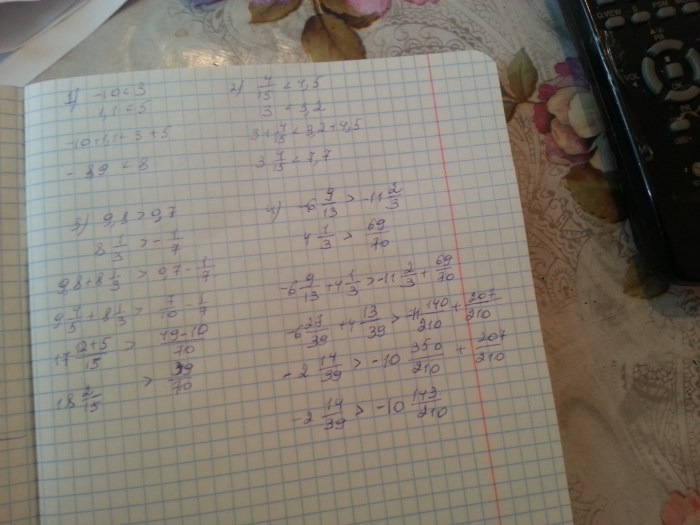 1) -10 < 3
1,1 < 5
-10+1,1 < 3+5
-8,9 < 8
2) 7/15 < 4,5
3 < 3,2
3+7/15 < 3,2+4,5
3 7/15 < 7,7
3) 9,8 > 0,7
8 1/3 > -1/7
9,8+8 1/3 > 0,7-1/7
9 4/5 + 8 1/3 > 7/10 - 1/7
17 (12+5)/15 > (49-10)/70
18 2/15 > 39/70
4) -6 9/13 > -11 2/3
4 1/3 > 69/70
-6 9/13 + 4 1/3 > -11 2/3 + 69/70
-6 27/39 + 4 13/39 > -11 140/210 + 207/210
-2 14/39 > -10 350/210 + 207/210
-2 14/39 > -10 143/210